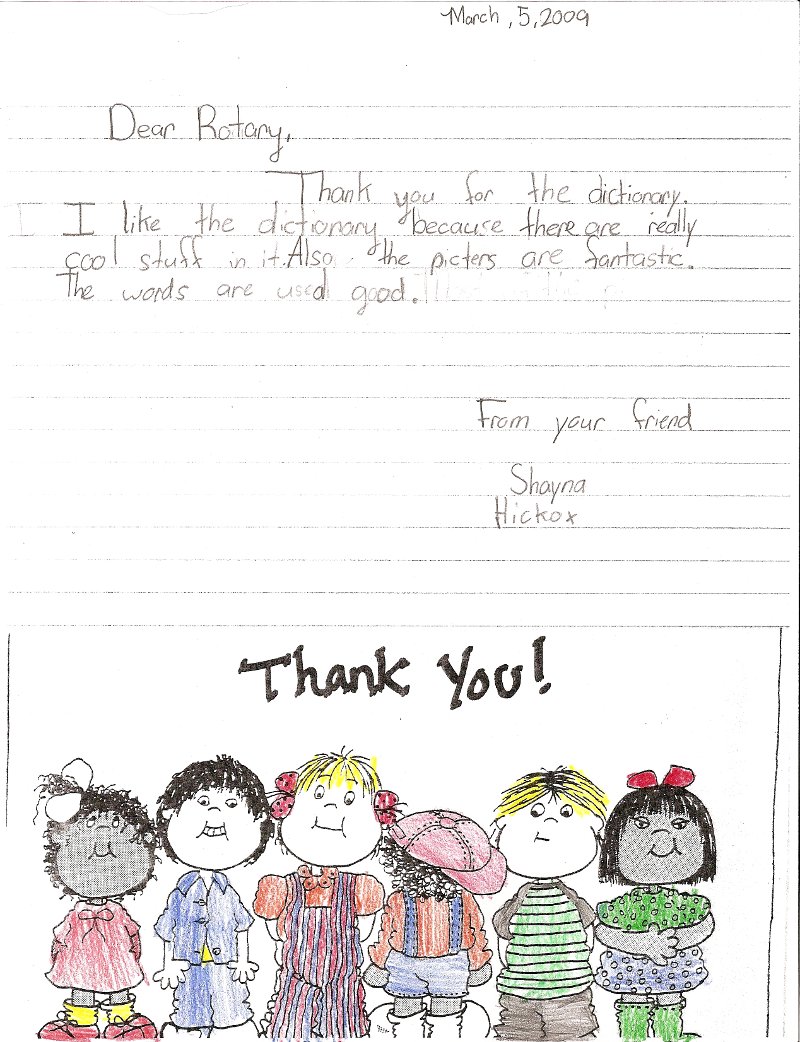 March, 5, 2009
Dear Rotary,
Thank you for the dictionary.
I like the dictionary because there are really
cool stuff in it. Also the picters are fantastic.
The words are used good.
From your friend
Shayna
Hickox
Thank You!